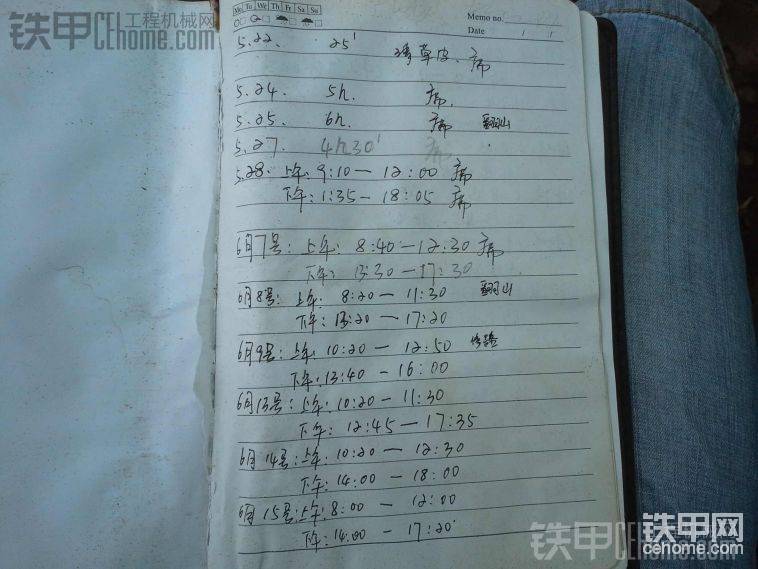 铁甲 工程机械网
CEhome.com
Mo Tu We Th Fr Sa Su
Memo no.
Date / /
5.22. 25' 草皮、席
5.24. 5h 席.
5.25. 6h 席 翻山
5.27. 4h30' 席
5.28. 上午: 9:10 — 12:00 席
下午: 1:35 — 18:05 席
6月7号: 上午: 8:40 — 12:30 席
下午: 13:30 — 17:30
6月8号: 上午: 8:20 — 11:30 翻山
下午: 13:20 — 17:20
6月9号: 上午: 10:20 — 12:50 修路
下午: 13:40 — 16:00
6月13号: 上午: 10:20 — 11:30
下午: 12:45 — 17:35
6月14号: 上午: 10:20 — 12:30
下午: 14:00 — 18:00
6月15号: 上午: 8:00 — 12:00
下午: 14:00 — 17:20
铁甲网
cehome.com